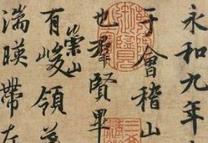 永和九年
于會稽山
也羣賢畢
有崇山峻領
湍暎帶左